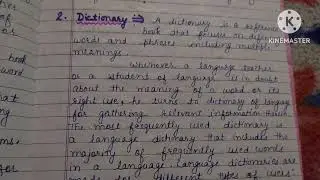 2. Dictionary ⇒ A dictionary is a reference
book that focuses on
words and phrases including multiple
meanings.
Whenever a language teacher
or a student of language is in doubt
about the meaning of a word or its
right use, he turns to dictionary of language
for gathering relevant information
The most frequently used dictionary is
a language dictionary that includes the
majority of frequently used words
in a language. Language dictionaries are
made for different types of users.
book
word
what
for
KINEMASTER